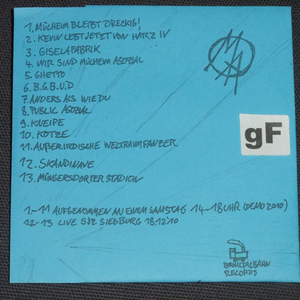 1. MÜLHEIM BLEIBT DRECKIG!
2. KEINN LEBT JETZT VON HARTZ IV
3. GISELAFABRIK
4. WIR SIND MÜLHEIM ASOZIAL
5. GHETTO
6. B.G.B.U.D
7. ANDERS ALS WIE DU
8. PUBLIC ASOZIAL
9. KNEIPE
10. KOTZE
11. AUßERIRDISCHE WELTRAUMPANZER
12. SKANDINAVE
13. MÜNGERSDORFER STADION
1.-11 AUFGENOMMEN AN EINEM SAMSTAG 14-18 UHR (DEMO 2010)
12-13 LIVE SJZ SIEGBURG 18.12.10
MA
gF
RECORDS